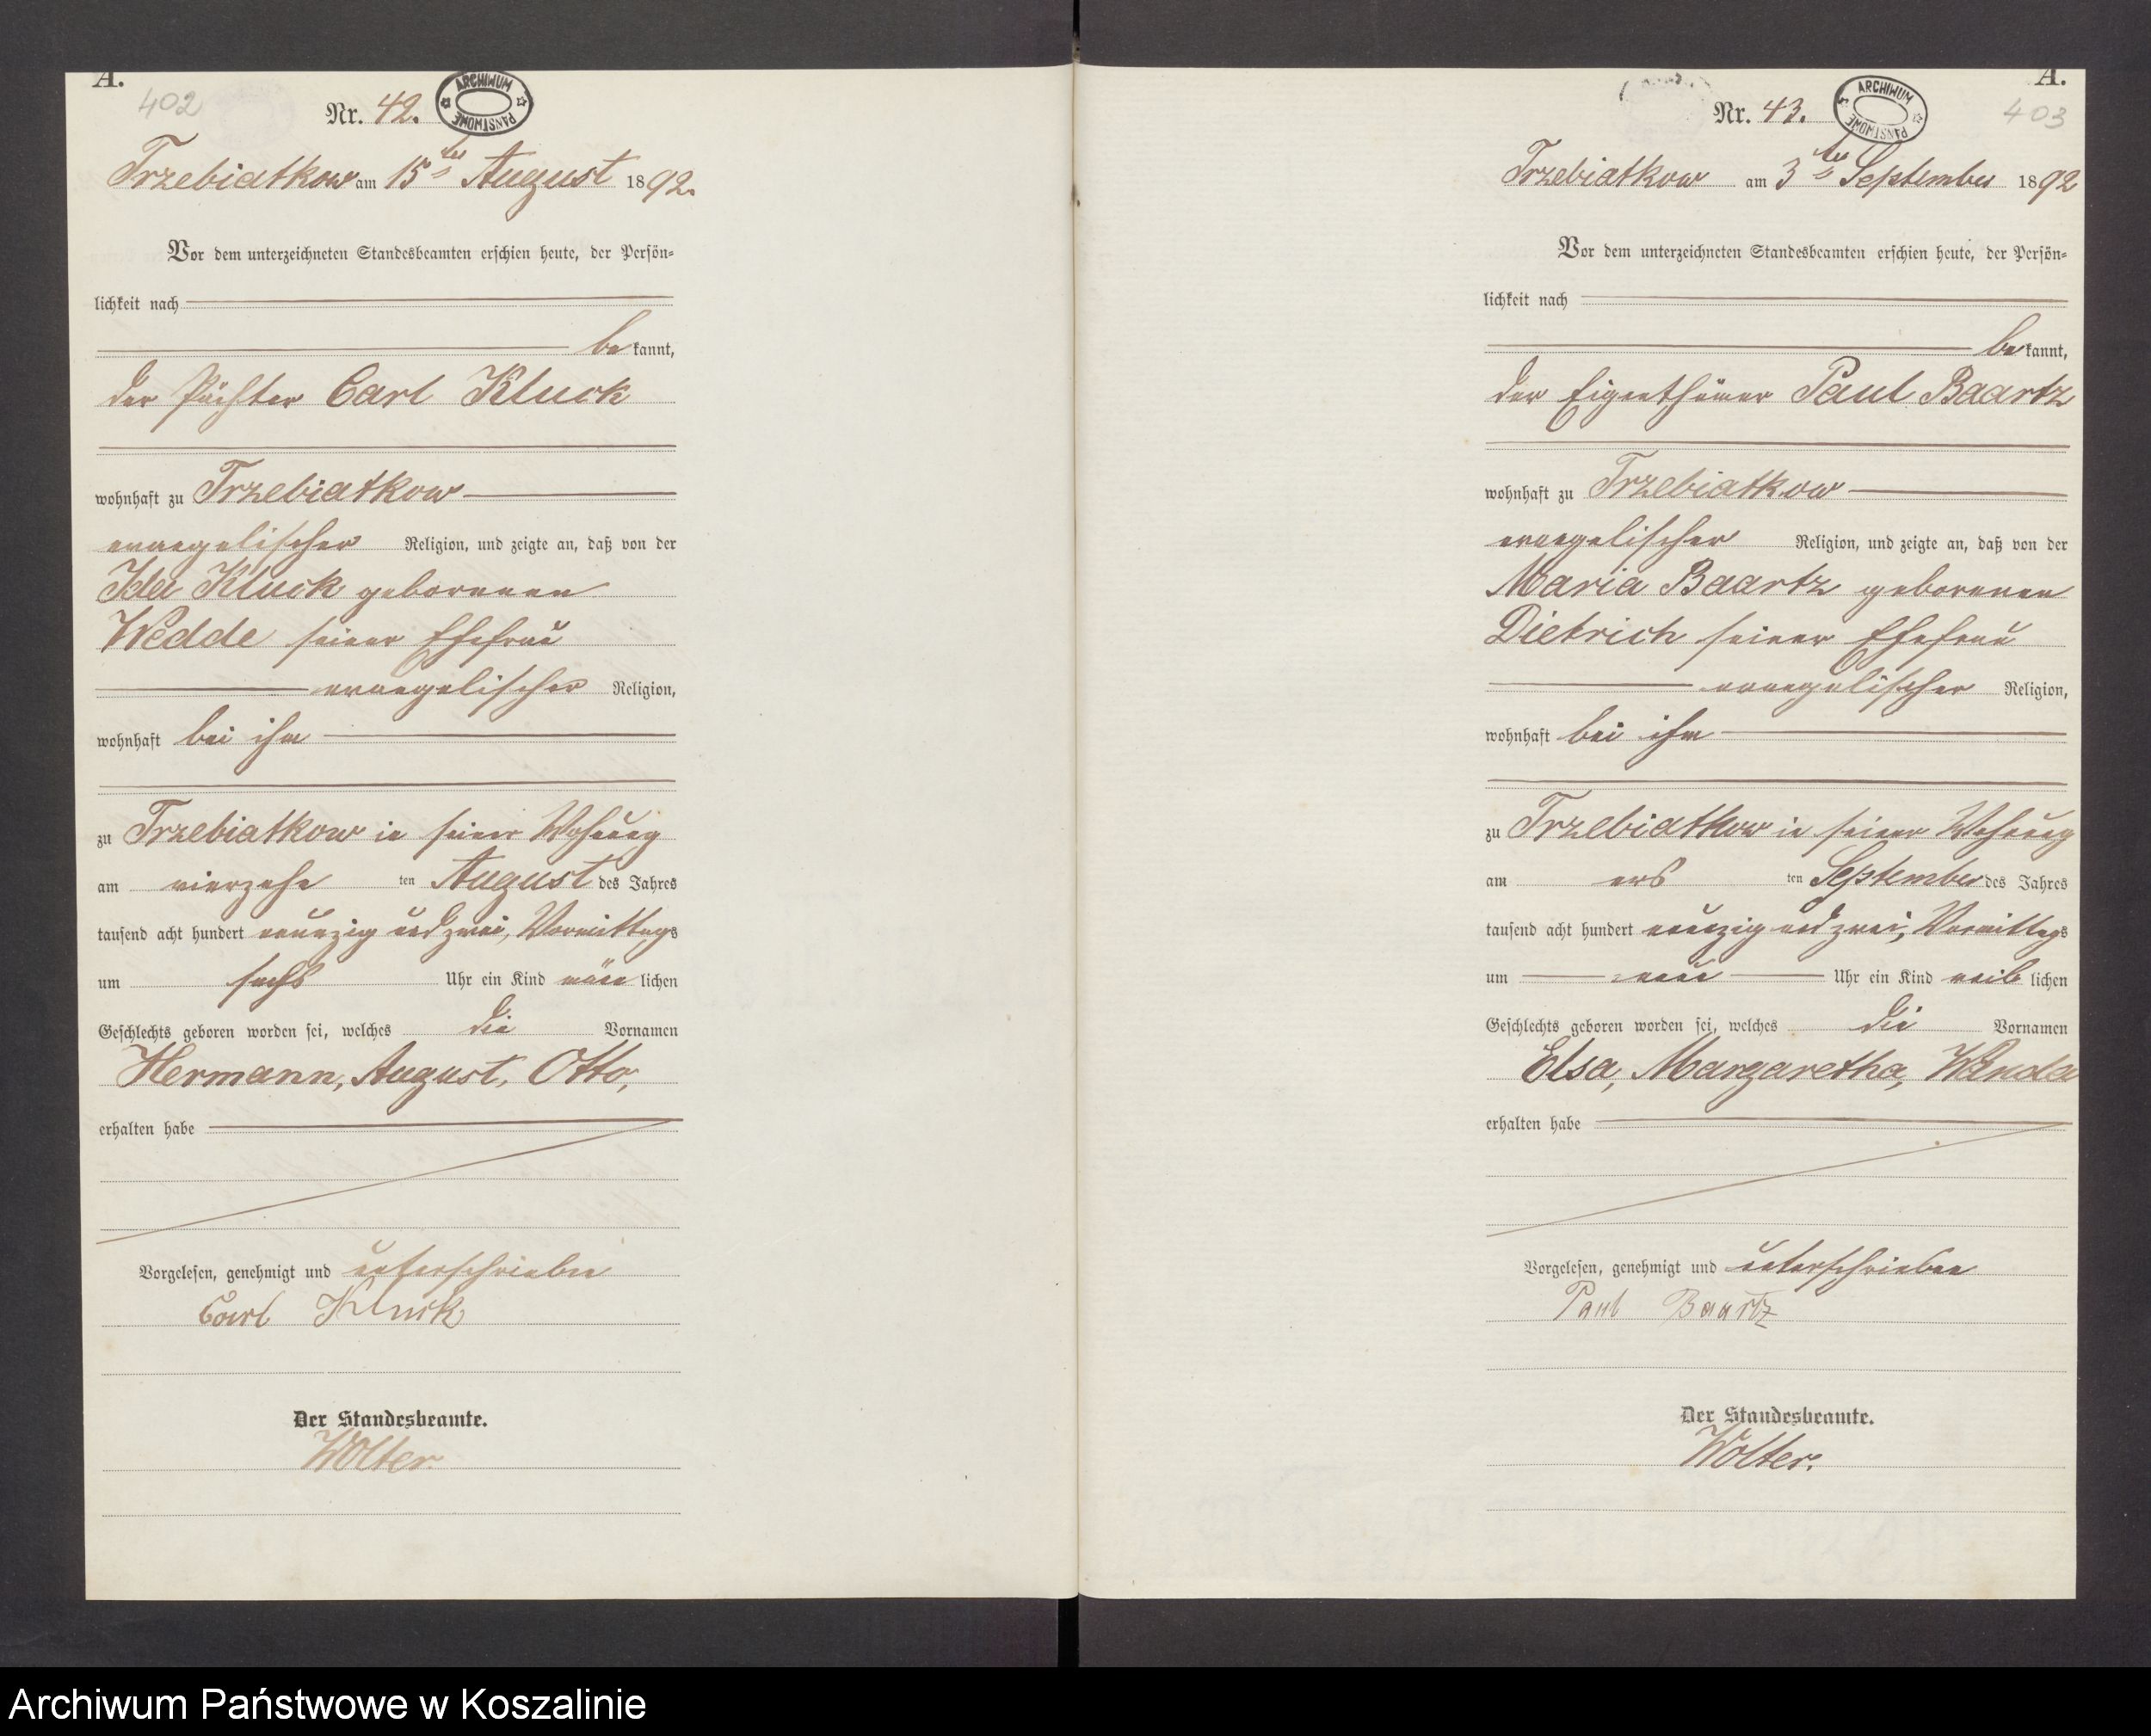 A.
402
Nr. 42.
ARCHIWUM PAŃSTWOWE
Trzebiatkow am 15ten August 1892.
Vor dem unterzeichneten Standesbeamten erschien heute, der Persön-
lichkeit nach
bekannt,
der Pächter Carl Kluck
wohnhaft zu Trzebiatkow
evangelischer Religion, und zeigte an, daß von der
Ida Kluck geborenen
Wedde seiner Ehefrau
evangelischer Religion,
wohnhaft bei ihm
zu Trzebiatkow in seiner Wohnung
am vierzehn ten August des Jahres
tausend acht hundert neunzig und zwei, Vormittags
um sechs Uhr ein Kind männlichen
Geschlechts geboren worden sei, welches die Vornamen
Hermann, August, Otto,
erhalten habe
Vorgelesen, genehmigt und unterschrieben
Carl Kluck
Der Standesbeamte.
Wolter
A.
403
Nr. 43.
ARCHIWUM PAŃSTWOWE
Trzebiatkow am 3ten September 1892
Vor dem unterzeichneten Standesbeamten erschien heute, der Persön-
lichkeit nach
bekannt,
der Eigenthümer Paul Baartz
wohnhaft zu Trzebiatkow
evangelischer Religion, und zeigte an, daß von der
Maria Baartz geborenen
Dietrich seiner Ehefrau
evangelischer Religion,
wohnhaft bei ihm
zu Trzebiatkow in seiner Wohnung
am ers ten September des Jahres
tausend acht hundert neunzig und zwei, Vormittags
um neun Uhr ein Kind weiblichen
Geschlechts geboren worden sei, welches die Vornamen
Elsa, Margaretha, Wanda
erhalten habe
Vorgelesen, genehmigt und unterschrieben
Paul Baartz
Der Standesbeamte.
Wolter.
Archiwum Państwowe w Koszalinie